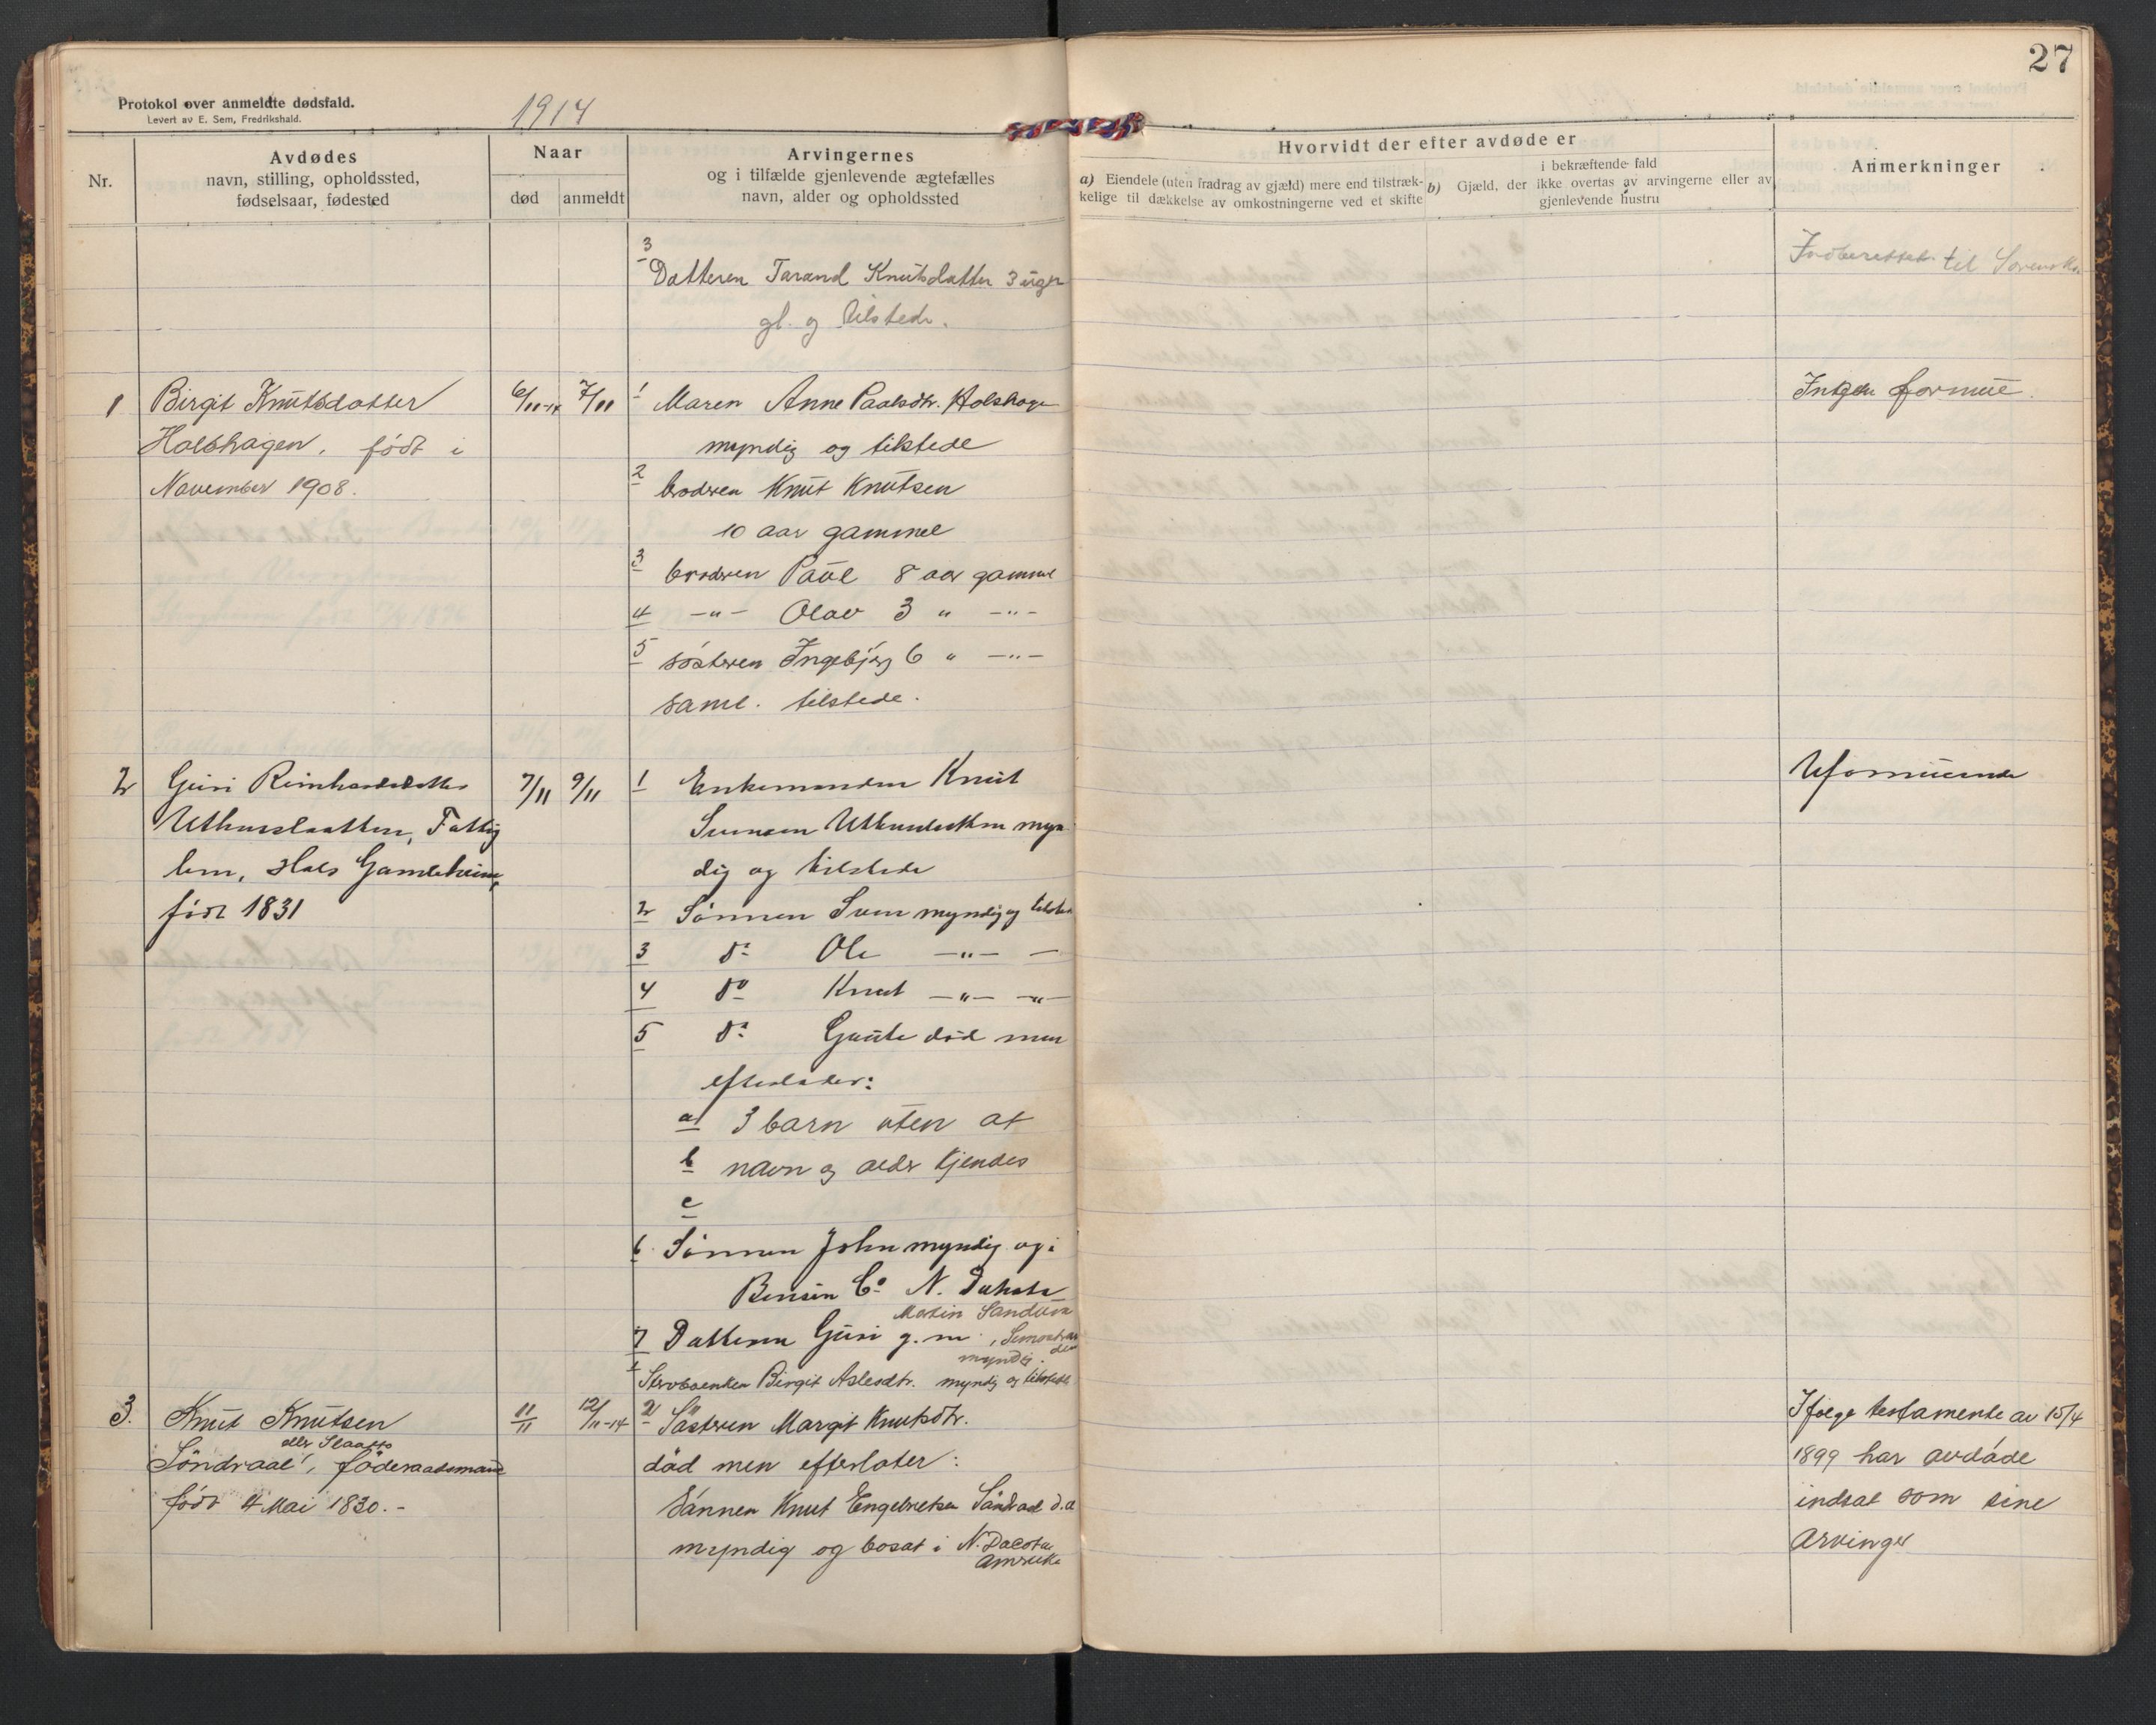 27
Protokol over anmeldte dødsfald.
Levert av E. Sem, Fredrikshald.
1914
Nr.
Avdødes
navn, stilling, opholdssted,
fødselsaar, fødested
Naar
død
anmeldt
Arvingernes
og i tilfælde gjenlevende ægtefælles
navn, alder og opholdssted
Hvorvidt der efter avdøde er
a) Eiendele (uten fradrag av gjæld) mere end tilstræk-
kelige til dækkelse av omkostningerne ved et skifte
i bekræftende fald
b) Gjæld, der ikke overtas av arvingerne eller av
gjenlevende hustru
Anmerkninger
3
Datteren Tarand Knutsdatter 3 uger
gl. og tilstede.
Indberettet til
1 Birgit Knutsdatter
Holshagen, født i
November 1908.
6/11-14 7/11
1 Maren Anne Paalsdtr. Holshagen
myndig og tilstede
2 broderen Knut Knutsen
10 aar gammel
3 broderen Paul 8 aar gammel
4 -"- Olav 3 " -"-
5 søsteren Ingebjørg 6 " -"-
saml. tilstede.
Ingen formue.
2 Guri Reinhardsdatter
Fattig
lem, Hols Gamleheim,
født 1831
7/11 9/11
1 Enkemanden Knut
Svensen myn
dig og tilstede
2 Sønnen Sven myndig og tilstede
3 do Ole -"- -
4 do Knut -"- -"-
5 do Gaute død men
efterlater:
a 3 barn uten at
b navn og alder kjendes
c
6 Sønnen John myndig og i
Benson Co N. Dakota
Martin Sandum
7 Datteren Guri g. m.
myndig.
3. Knut Knutsen
eller Slaatto
Søndraal, føderaadsmand
født 4 Mai 1830.-
11/11 12/11-14
1 Stervboenken Birgit Aslesdtr. myndig og tilstede
2 Søsteren Margit Knutsdtr.
død men efterlater:
Sønnen Knut Engebretsen Søndraal d.æ
myndig og bosat i N. Dacota
Amerika
Ifølge testamente av 15/4
1899 har avdøde
indsat som sine
Arvinger